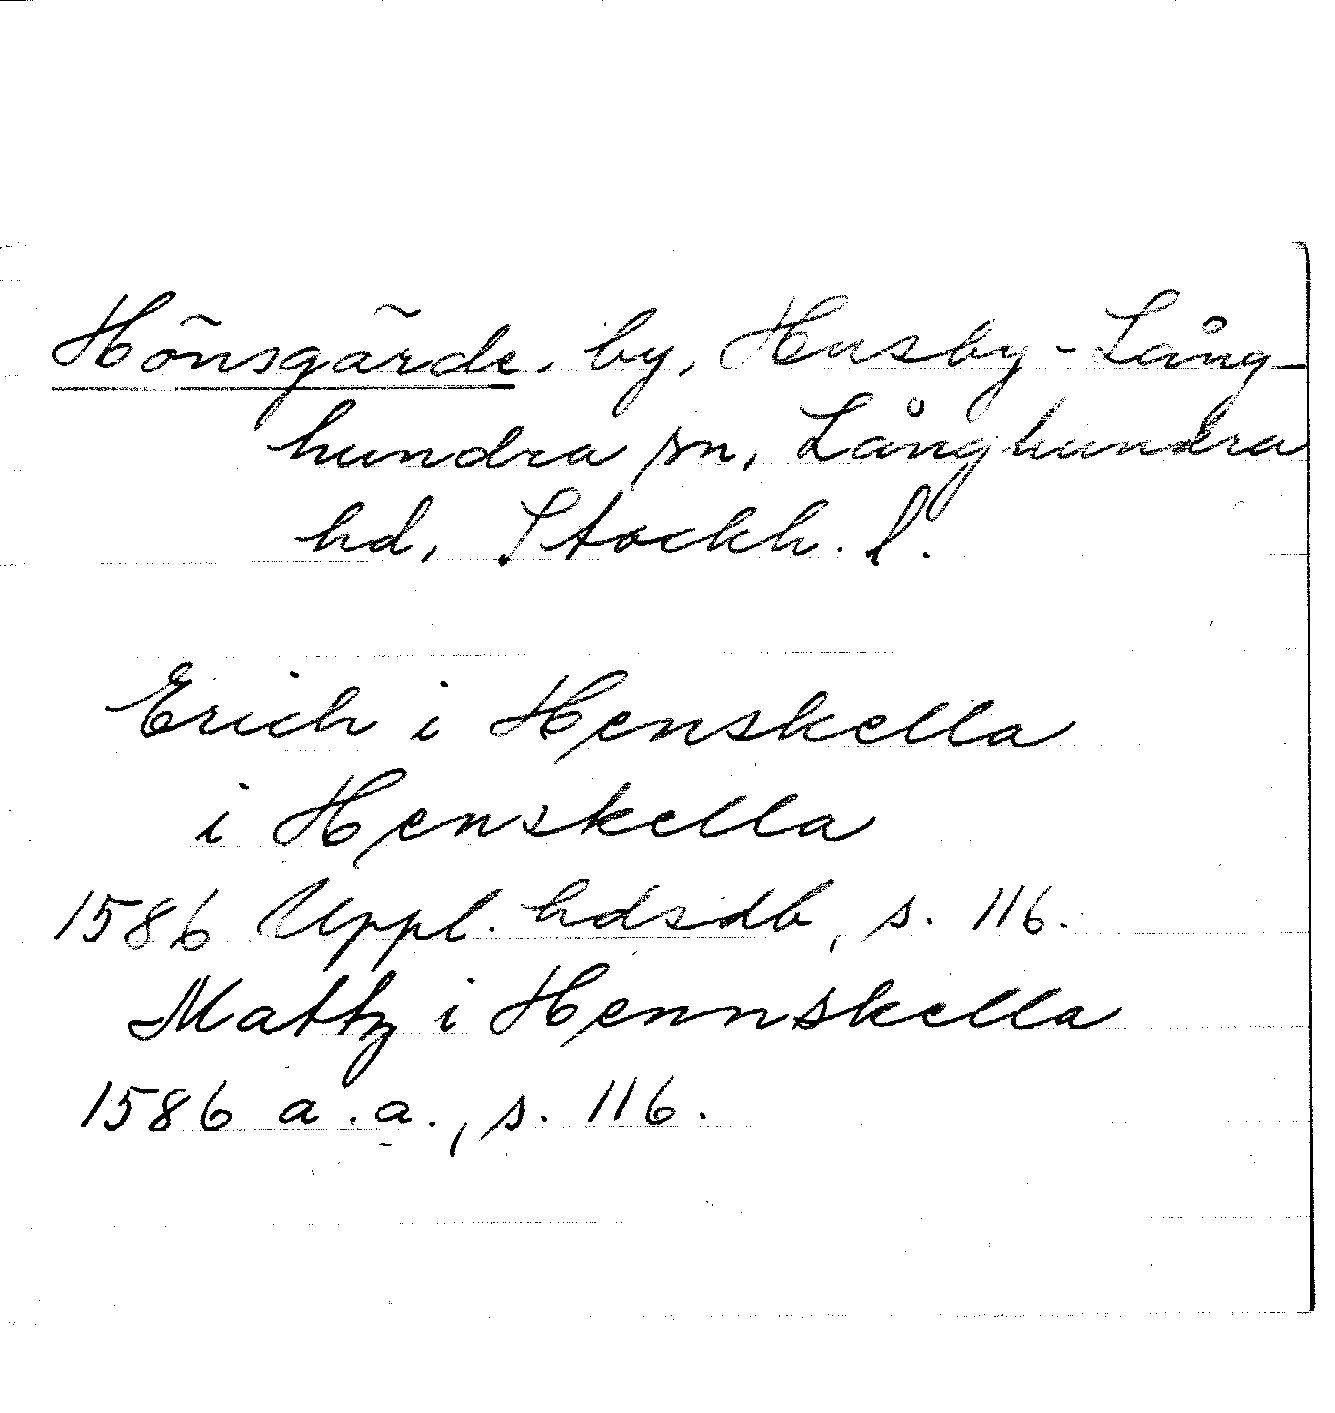 Hönsgärde, by, Husby-Lång-
hundra sn, Långhundra
hd, Stockh. l.
Erich i Henskella
i Henskella
1586 Uppl. hdsdb, s. 116.
Mattz i Hennskella
1586 a.a., s. 116.